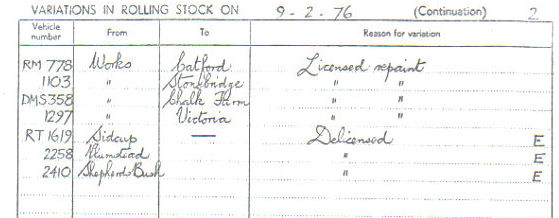 VARIATIONS IN ROLLING STOCK ON 9-2-76 (Continuation) 2
Vehicle number From To Reason for variation
RM 778 Works Catford Licensed repaint
1103 " Stonebridge " "
DMS 358 " Chalk Farm " "
1297 " Victoria " "
RT 1619 Sidcup — Delicensed E
2258 Plumstead " E
2410 Shepherds Bush " E